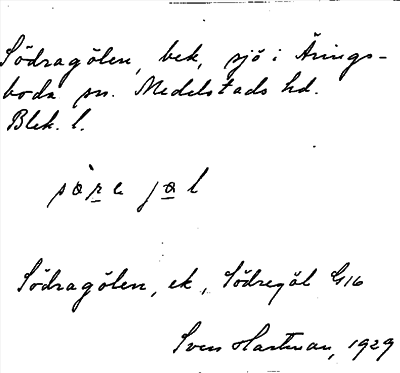 Södragölen, bek, sjö i Ärings-
boda sn. Medelstads hd.
Blek. l.
Södragölen, ek, Södregöl G116
Sven Hartman, 1929